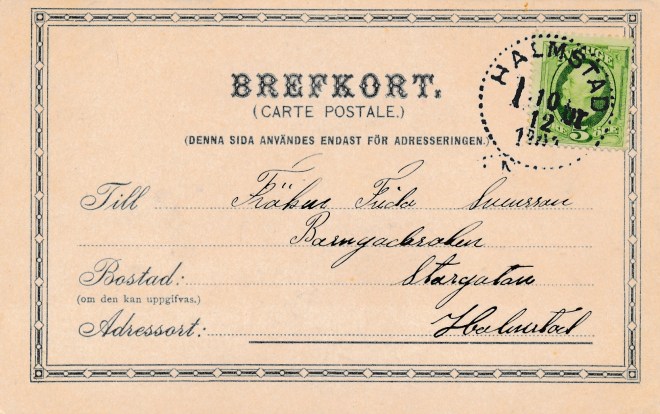 BREFKORT.
(CARTE POSTALE.)
(DENNA SIDA ANVÄNDES ENDAST FÖR ADRESSERINGEN.)
HALMSTAD
12
5
Till Fröken Frida Svensson
Bostad: Storgatan
(om den kan uppgifvas.)
Adressort: Halmstad